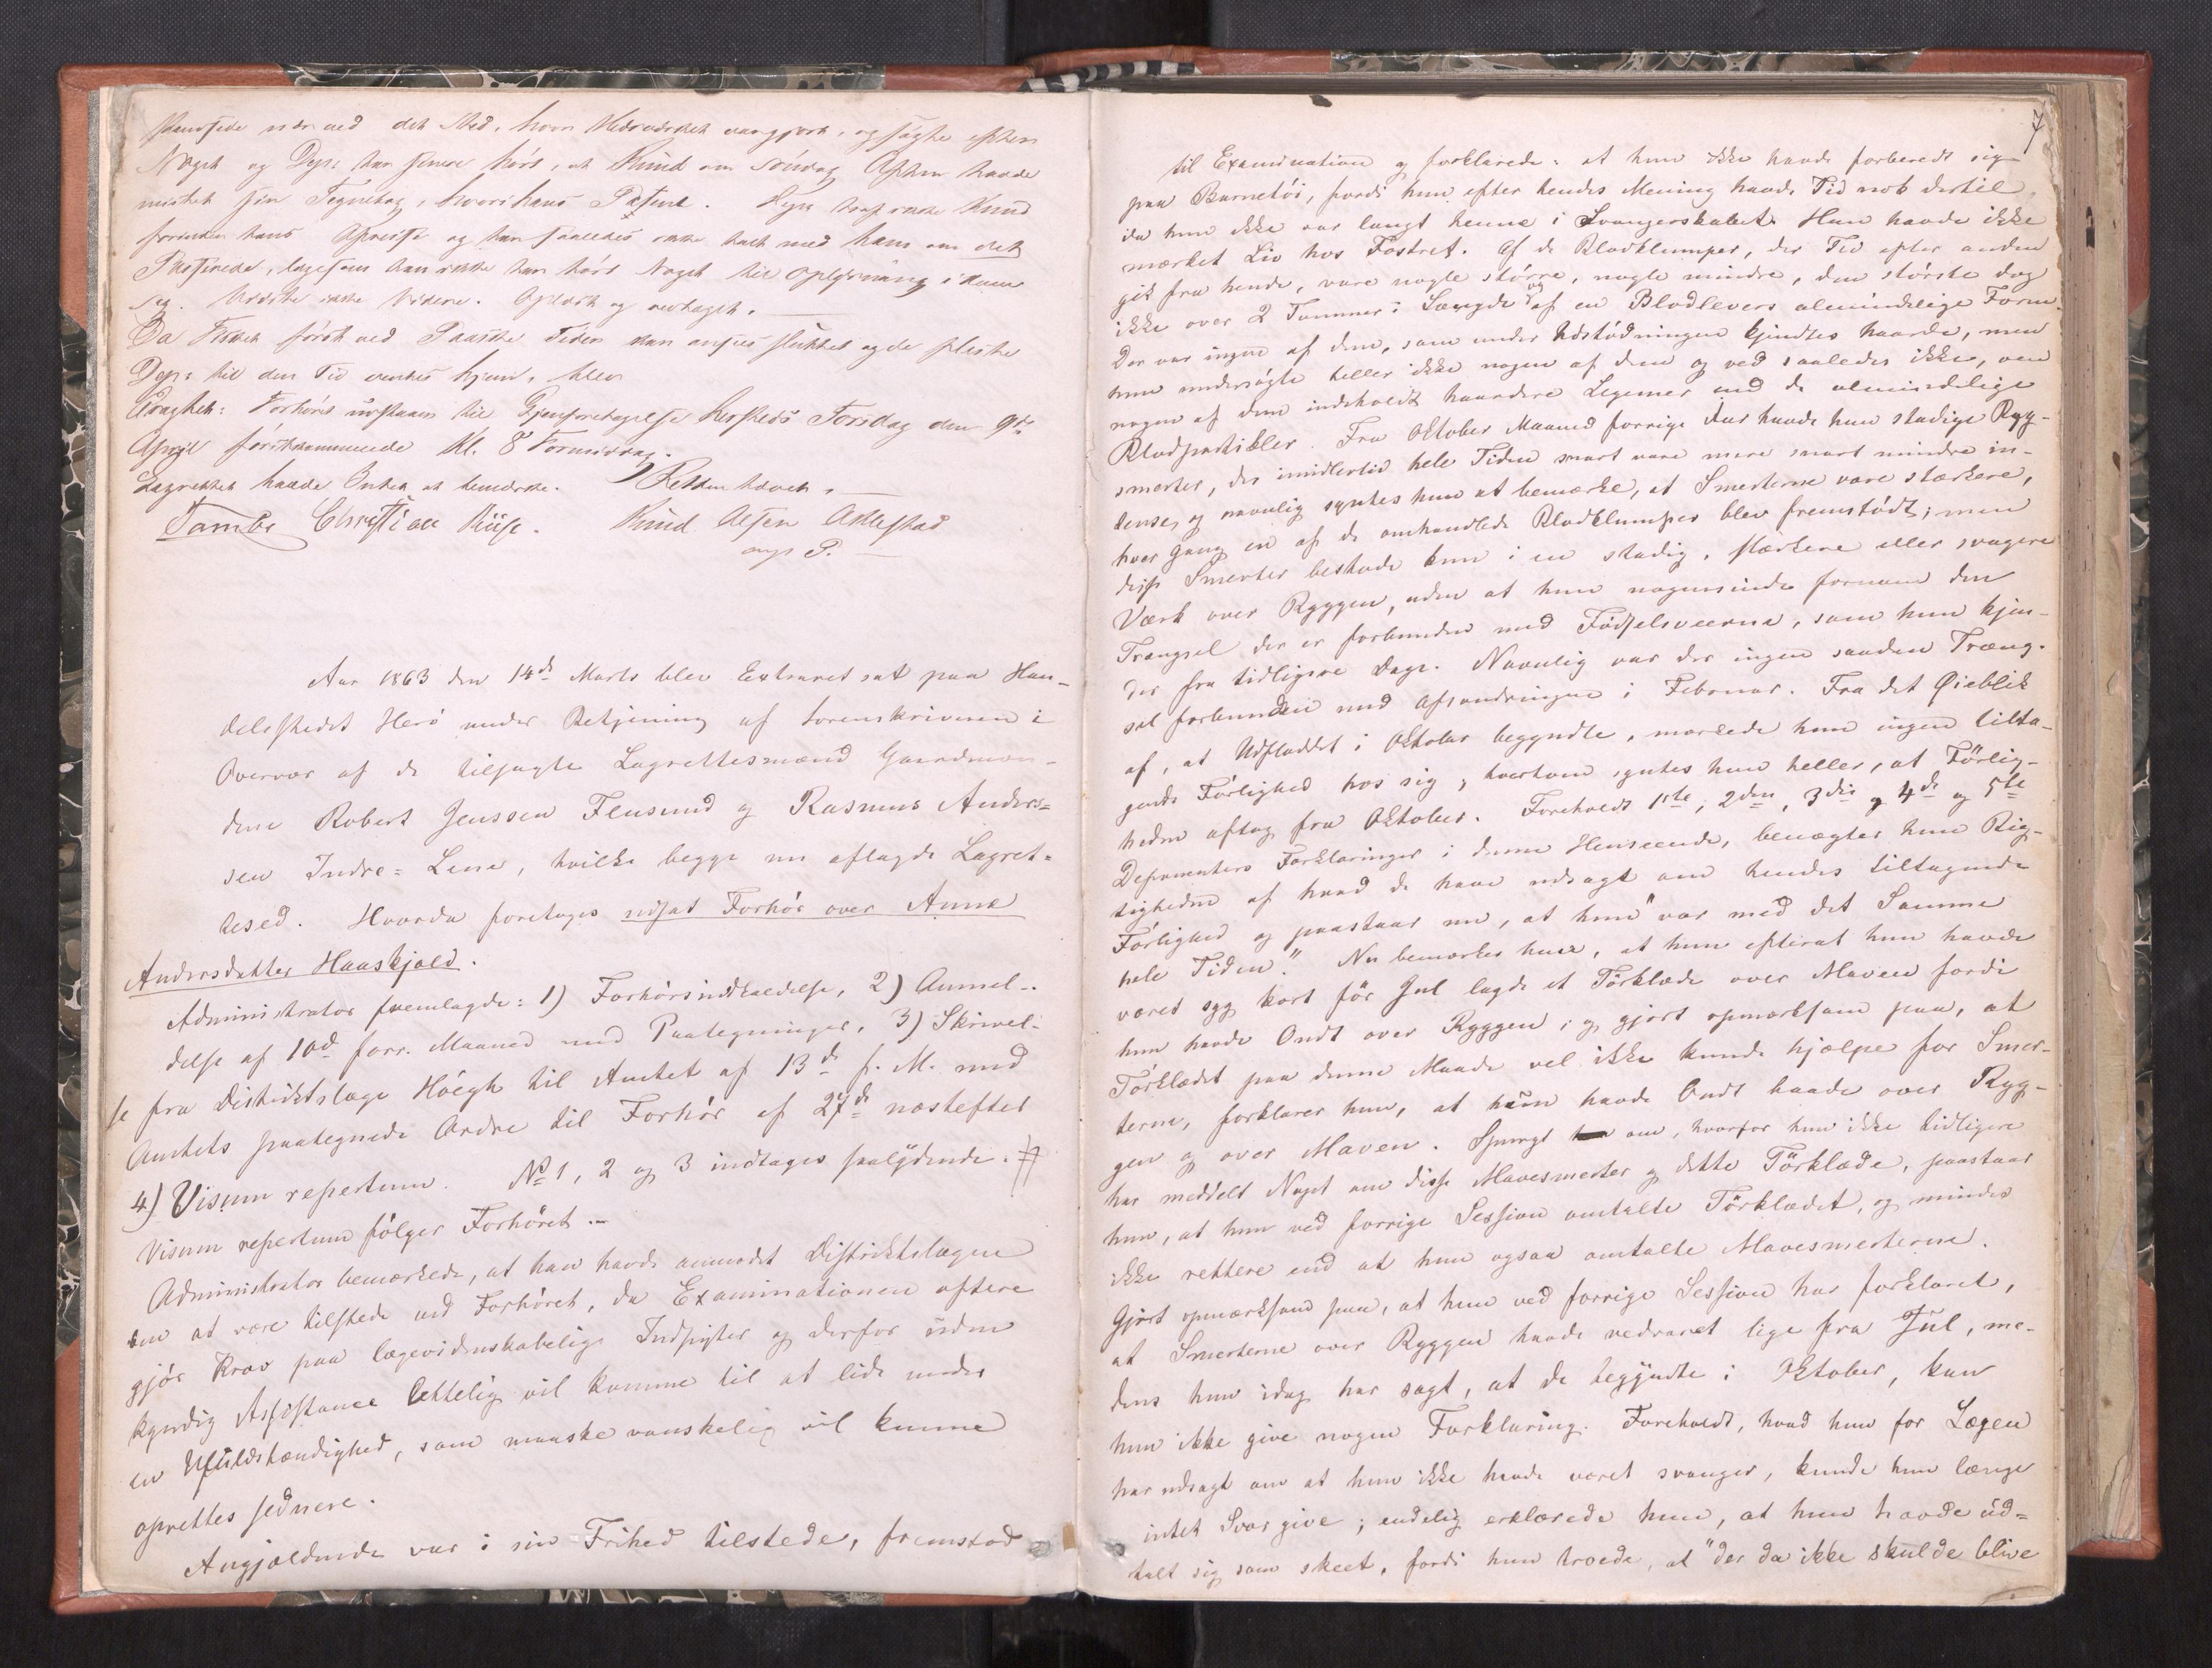 passerede nær ved det Sted, hvor Hærværket var gjort, og søgte efter
Noget og Dep: har senere hørt, at Knud om Søndag Aften havde
mistet sin Tegnebog, hvori hans Pas. Dep: traf ikke Knud
forinden hans Afreise og har saaledes ikke talt med ham om det
Passerede, ligesom han ikke har hørt Noget til Oplysning i denne
Sag. Vidste ikke Videre. Oplæst og vedtaget.
Da Fisket først ved Paaske Tiden kan ansees sluttet og de fleste
Dep: til den Tid ventes hjem, blev
Eragtet: Forhøret udstaaer til Gjenforetagelse hersteds Torsdag den 9de
April førstkommende Kl. 8 Formiddag.
Lagrettet havde Intet at bemærke. Retten hævet.
Tambs Christian Riise. Knud Olsen
m. p. P.
Aar 1863 den 14de Marts blev Extraret sat paa Han-
delsstedet Herø under Betjening af Sorenskriveren i
Overvær af de tilsagte Lagrettesmænd Gaardmæn-
dene Robert Jenssen Flusund og Rasmus Anders-
sen Indre-Leine, hvilke begge nu aflagde Lagret-
tesed. Hvorda foretages udsat Forhør over Anne
Andersdatter Haaskjold.
Administrator fremlagde: 1) Forhørsindkaldelse, 2) Anmel-
delse af 10de forr. Maaned med Paategninger, 3) Skrivel-
se fra Distriktslæge Höegh til Amtet af 13de f. M. med
Amtets paategnede Ordre til Forhør af 27de næstefter
4) Visum repertum. No 1, 2 og 3 indtages saalydende. #
Visum repertum følger Forhøret.—
Administrator bemærkede, at han havde anmodet Distriktslægen
om at være tilstede ved Forhøret, da Examinationen oftere
gjør Krav paa lægevidenskabelige Indsigter og derfor uden
kyndig Assistance lettelig vil komme til at lide under
en Ufuldstændighed, som maaske vanskelig vil kunne
oprettes sednere.
Angjældende var i sin Frihed tilstede, fremstod
7
til Examination og forklarede: at hun ikke havde forberedt sig
paa Barnetøi, fordi hun efter hendes Mening havde Tid nok dertil
da hun ikke var langt henne i Svangerskabet. Hun havde ikke
mærket Liv hos Fostret. Af de Blodklumper, der Tid efter anden
gik fra hende, vare nogle større, nogle mindre, den største dog
ikke over 2 Tommer i Længde og af en Blodlevers almindelige Form.
Der var ingen af dem, som under Udstødningen kjendtes haarde, men
hun undersøgte heller ikke nogen af dem og ved saaledes ikke, om
nogen af dem indeholdt haardere Legemer end de almindelige
Blodpartikler. Fra Oktober Maaned forrige Aar havde hun stadige Ryg-
smerter, der imidlertid hele Tiden snart vare mere snart mindre in-
tense, og navnlig syntes hun at bemærke, at Smerterne vare stærkere,
hver Gang en af de omhandlede Blodklumper blev fremstødt; men
disse Smerter bestode kun i en stadig, stærkere eller svagere
Værk over Ryggen, uden at hun nogensinde fornam den
Trængsel der er forbunden med Fødselsveerne, som hun kjen-
der fra tidligere Dage. Navnlig var der ingen saadan Træng-
sel forbunden med Afsondringen i Februar. Fra det Øieblik
af, at Udflodet i Oktober begyndte, mærkede hun ingen tilta-
gende Førlighed hos sig, tvertom syntes hun heller, at Førlig-
heden aftog fra Oktober. Foreholdt 1ste, 2den, 3die og 4de og 5te
Deponenters Forklaringer i denne Henseende, benægter hun Rig-
tigheden af hvad de have udsagt om hendes tiltagende
Førlighed og paastaar nu, at hun "var med det Samme
hele Tiden." Nu bemærker hun, at hun efterat hun havde
været syg kort før Jul lagde et Tørklæde over Maven fordi
hun havde Ondt over Ryggen; og gjort opmærksom paa, at
Tørklædet paa denne Maade vel ikke kunde hjælpe for Smer-
terne, forklarer hun, at hun havde Ondt baade over Ryg-
gen og over Maven. Spurgt om, hvorfor hun ikke tidligere
har meddelt Noget om disse Mavesmerter og dette Tørklæde, paastaar
hun, at hun ved forrige Session omtalte Tørklædet, og mindes
ikke rettere end at hun ogsaa omtalte Mavesmerterne.
Gjort opmærksom paa, at hun ved forrige Session har forklaret,
at Smerterne over Ryggen havde vedvaret lige fra Jul, me-
dens hun idag har sagt, at de begyndte i Oktober, kan
hun ikke give nogen Forklaring. Foreholdt, hvad hun for Lægen
har udsagt om at hun ikke havde været svanger, kunde hun længe
intet Svar give; endelig erklærede hun, at hun havde ud-
talt sig som skeet, fordi hun troede, at "der da ikke skulde blive